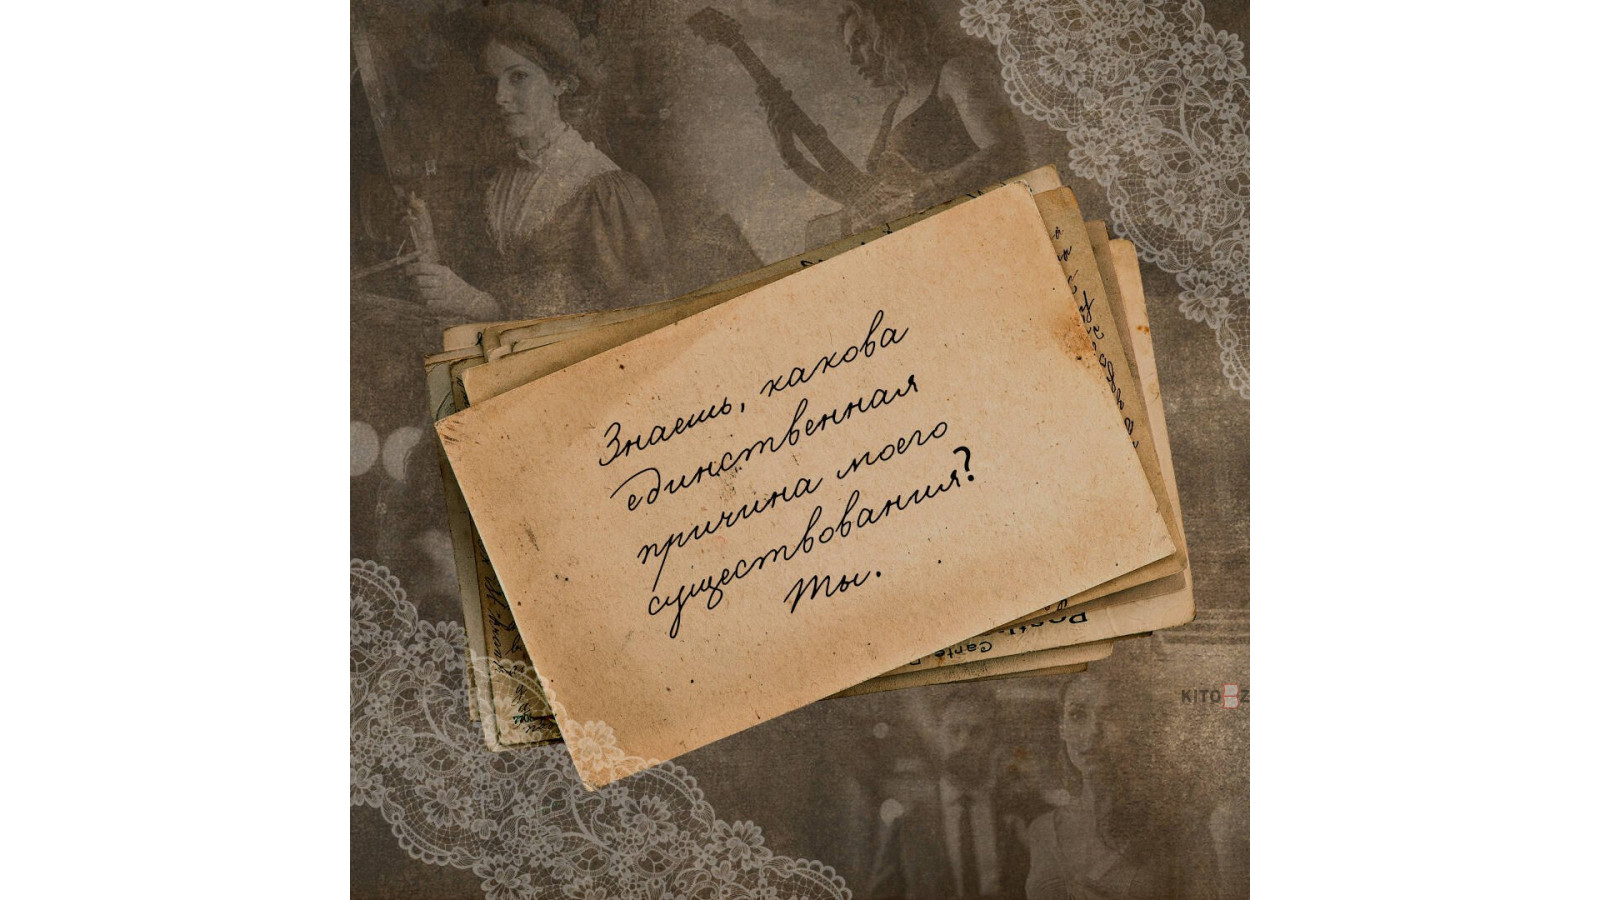 Знаешь, какова
единственная
причина моего
существования?
Ты.
KITOBZ